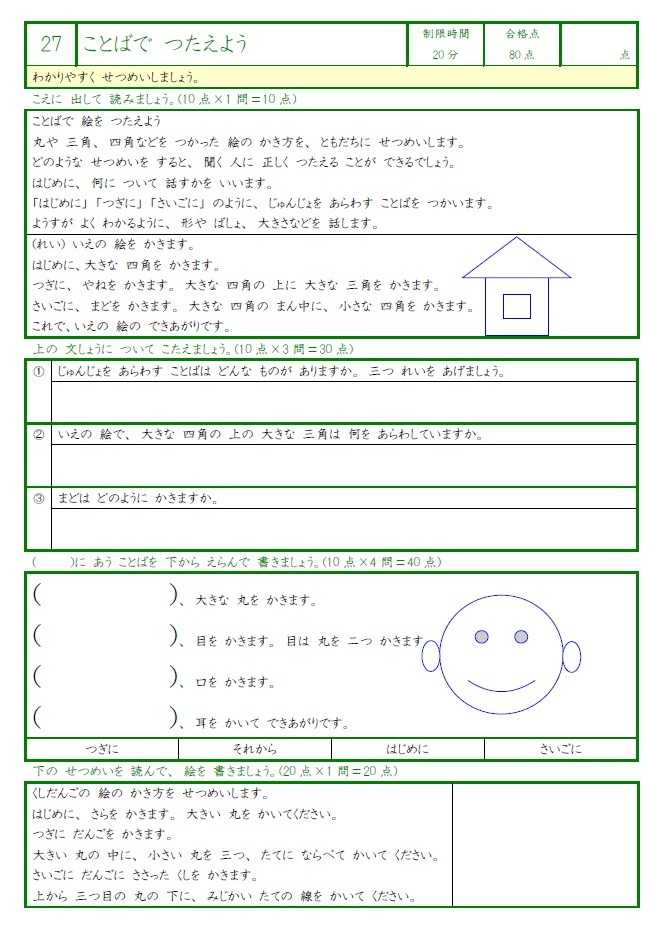 27
ことばで つたえよう
制限時間
20分
合格点
80点
点
わかりやすく せつめいしましょう。
こえに 出して 読みましょう。(10点×1問=10点)
ことばで 絵を つたえよう
丸や 三角、 四角などを つかった 絵の かき方を、 ともだちに せつめいします。
どのような せつめいを すると、 聞く 人に 正しく つたえる ことが できるでしょう。
はじめに、 何に ついて 話すかを いいます。
「はじめに」 「つぎに」 「さいごに」 のように、 じゅんじょを あらわす ことばを つかいます。
ようすが よく わかるように、 形や ばしょ、 大きさなどを 話します。
(れい) いえの 絵を かきます。
はじめに、大きな 四角を かきます。
つぎに、 やねを かきます。 大きな 四角の 上に 大きな 三角を かきます。
さいごに、 まどを かきます。 大きな 四角の まん中に、 小さな 四角を かきます。
これで、いえの 絵の できあがりです。
上の 文しょうに ついて こたえましょう。(10点×3問=30点)
① じゅんじょを あらわす ことばは どんな ものが ありますか。 三つ れいを あげましょう。
② いえの 絵で、 大きな 四角の 上の 大きな 三角は 何を あらわしていますか。
③ まどは どのように かきますか。
( )に あう ことばを 下から えらんで 書きましょう。(10点×4問=40点)
( )、 大きな 丸を かきます。
( )、 目を かきます。 目は 丸を 二つ かきます。
( )、 口を かきます。
( )、 耳を かいて できあがりです。
つぎに それから はじめに さいごに
下の せつめいを 読んで、 絵を 書きましょう。(20点×1問=20点)
くしだんごの 絵の かき方を せつめいします。
はじめに、 さらを かきます。 大きい 丸を かいてください。
つぎに だんごを かきます。
大きい 丸の 中に、 小さい 丸を 三つ、 たてに ならべて かいて ください。
さいごに だんごに ささった くしを かきます。
上から 三つ目の 丸の 下に、 みじかい たての 線を かいて ください。